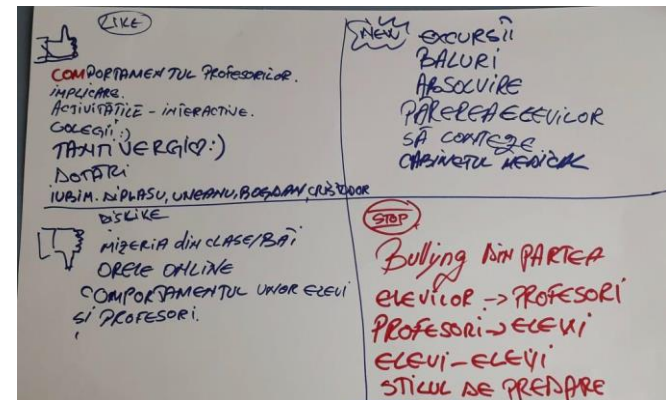 LIKE
COMPORTAMENTUL PROFESORILOR.
IMPLICARE.
ACTIVITĂȚILE - INTERACTIVE.
COLEGII :)
TANTI VERGI♡:)
DOTĂRI
IUBIM. DIPLASU, UNEANU, BOGDAN,
DISLIKE
MIZERIA din CLASE/BĂI
ORELE ONLINE
COMPORTAMENTUL UNOR ELEVI
ȘI PROFESORI.
NEW
EXCURSII
BALURI
ABSOLVIRE
PĂREREA ELEVILOR
SĂ CONTEZE
CABINETUL MEDICAL
STOP
Bullyng DIN PARTEA
ELEVILOR -> PROFESORI
PROFESORI -> ELEVI
ELEVI - ELEVI
STILUL DE PREDARE